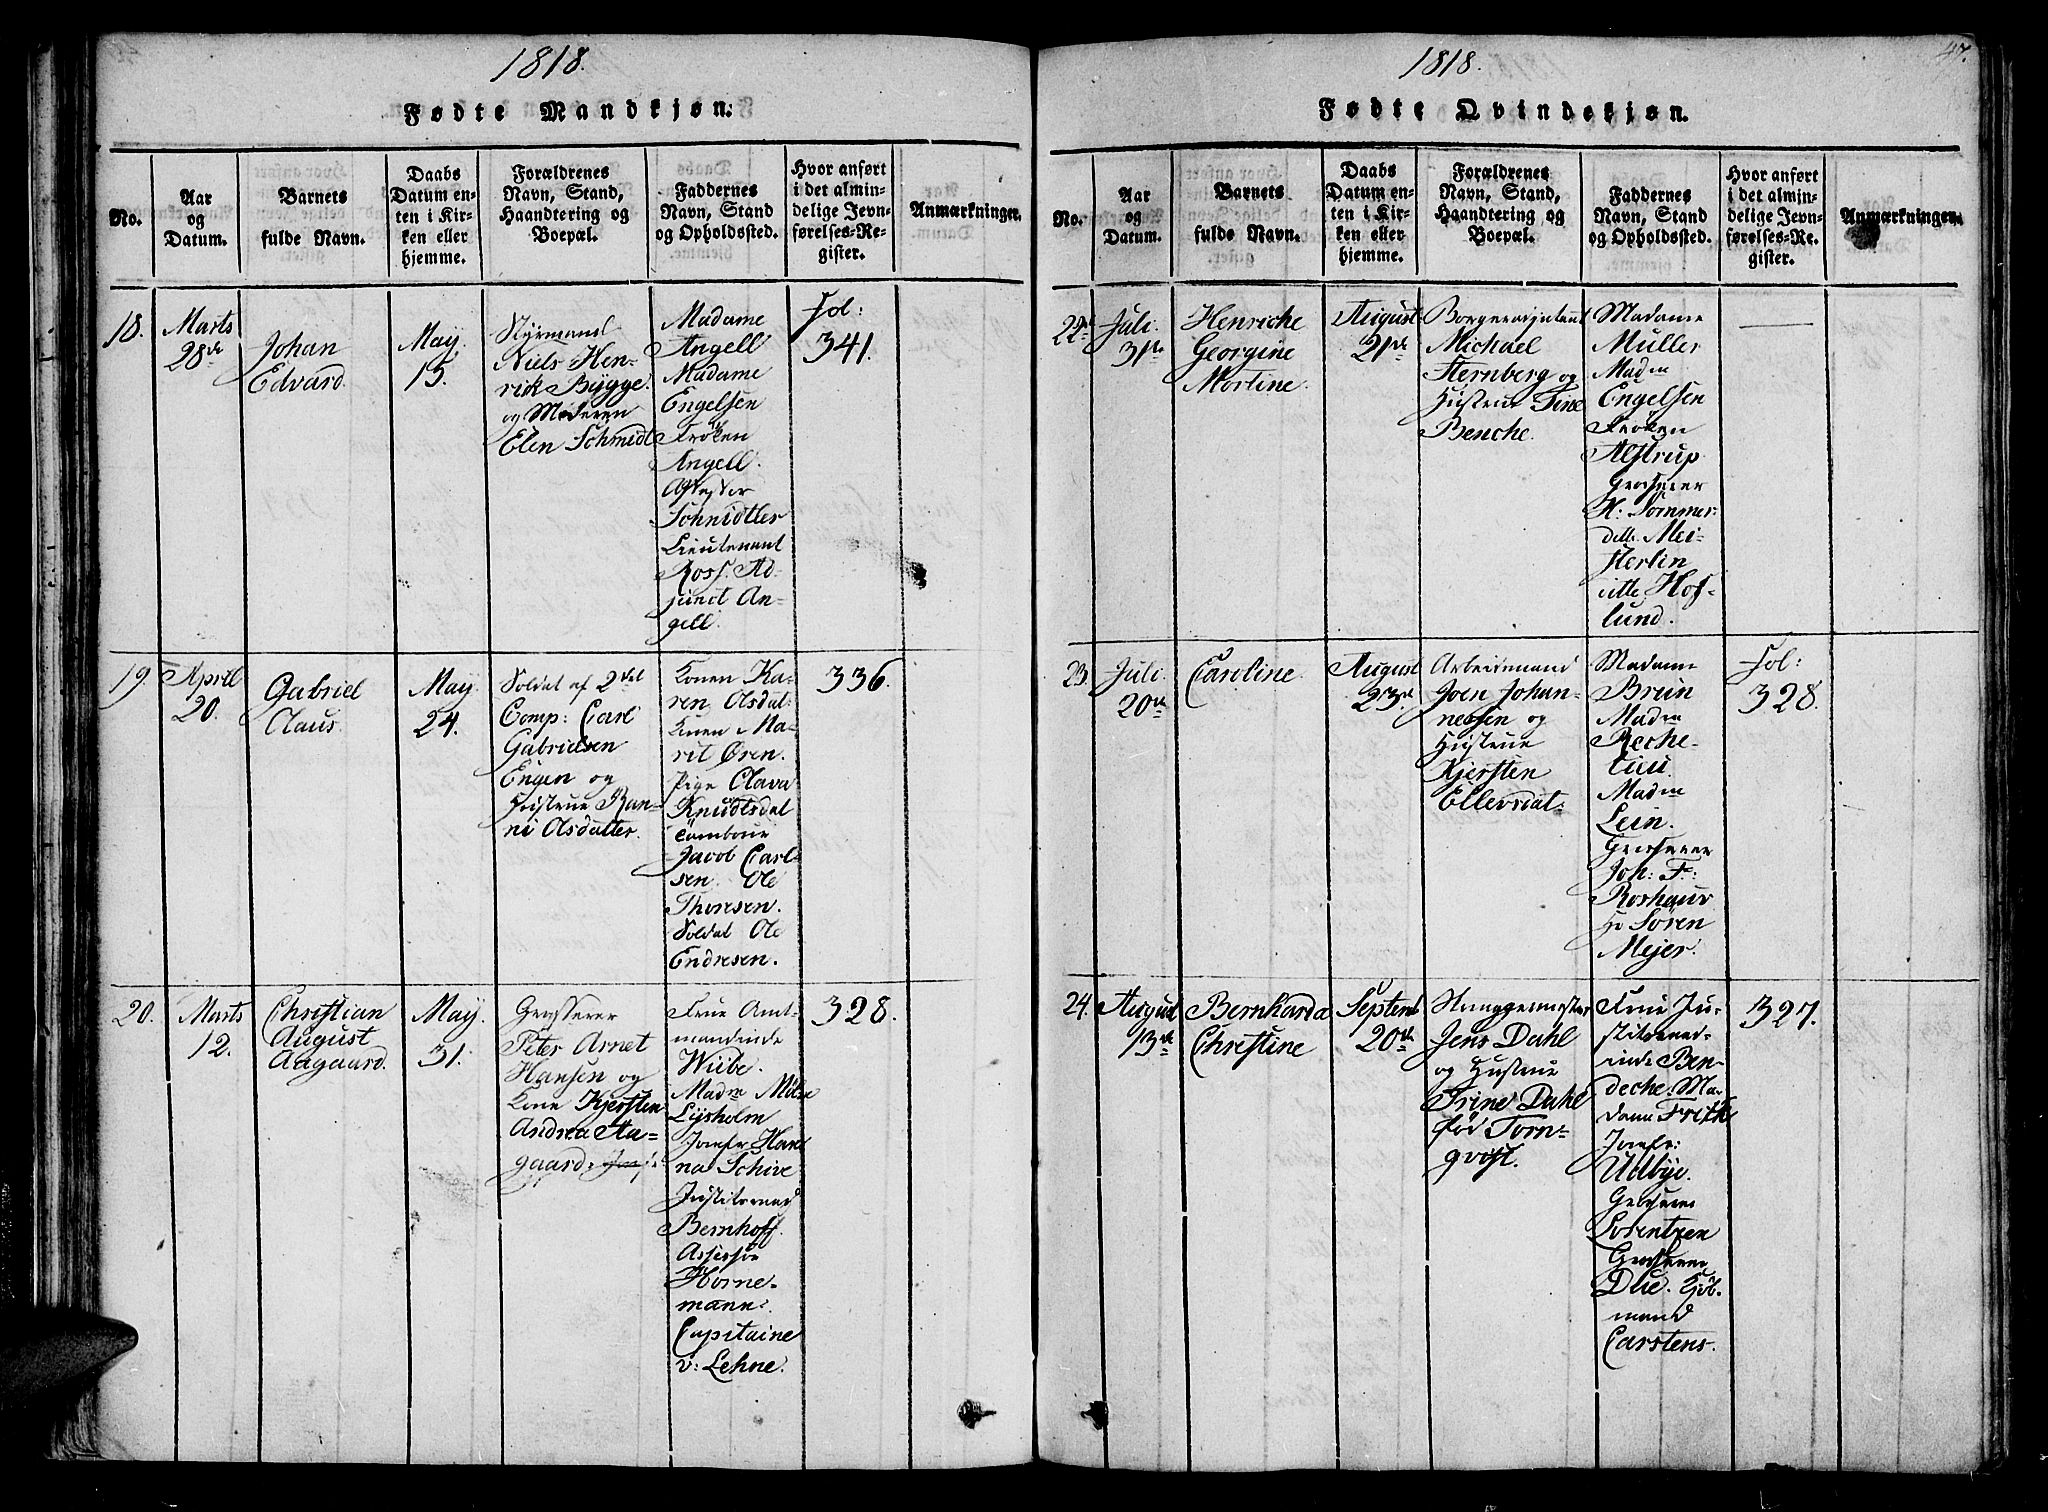 1818.
Fødte Mandkjøn.
No.
Aar
og
Datum.
Barnets
fulde Navn.
Daabs
Datum en-
ten i Kir-
ken eller
hjemme.
Forældrenes
Navn, Stand,
Haandtering og
Boepæl.
Faddernes
Navn, Stand
og Opholdssted.
Hvor anført
i det almin-
delige Jevn-
førelses-Re-
gister.
Anmærkninger.
18.
Marts
28de
Johan
Edvard.
May.
15.
Styrmand
Niels Hen-
rik Bygge.
og Moderen
Elen Schmidt
Madame
Angell
Madame
Engelsen
Frøken
Angell.
Schmidtler
Lieutenant
Ross. Ad-
junct An-
gell.
Fol:
341.
19.
April
20.
Gabriel
Claus.
May.
24.
Soldat af 2det
Comp: Carl
Gabrielsen
Engen og
Hustrue Ran-
ni Olsdatter.
Konen Ka-
ren Olsdat:
Konen Ma-
rit Ören.
Pige Olava
Knudtsdat
Tambour
Jacob Carl-
sen. Ole
Thoresen.
Soldat Ole
Endresen.
336.
20.
Marts
12.
Christian
August
Aagaard.
May.
31.
Grosserer
Peter Arnet
Hansen og
Kone Kjersten
Andrea Aa-
gaard.
Frue Amt-
mandinde
Wibe.
Madm Möse
Lysholm
Jomfr Han
na Schive
Justitsraad
Bernhoff.
Assessor
Horne-
mann.
Capitaine
v: Lehne.
328.
1818.
47.
Fødte Qvindekjøn.
No.
Aar
og
Datum.
Barnets
fulde Navn.
Daabs
Datum en-
ten i Kir-
ken eller
hjemme.
Forældrenes
Navn, Stand,
Haandtering og
Boepæl.
Faddernes
Navn, Stand
og Opholdssted.
Hvor anført
i det almin-
delige Jevn-
førelses-Re-
gister.
Anmærkninger.
22.
Juli.
31te
Henriche
Georgine
Mortine.
August
21de
Borgeradjutant
Michael
Sternberg og
Hustrue Tine
Benche.
Madame
Müller
Madm
Engelsen
Frøken
Alstrup
Grosserer
H: Sommer:
ditto Mei-
sterlin
ditto Hof-
lund.
23.
Juli.
20de
Caroline.
August
23de
Arbeidsmand
Joen Johan-
nessen og
Hustrue
Kjersten
Ellevsdat:
Madame
Brun
Madm
Reche-
tiu.
Madm
Lein.
Grosserer
Joh: F:
Roshauv
Hr Sören
Mejer.
Fol:
328.
24.
August
13de
Bernharda
Christine
Septemb
20de
Jens Dahl
og Hustrue
Trine Dahl
föd Torn-
qvist.
Frue Ju-
stitsraad-
inde Ben-
deche. Ma-
dame Frith
Jomfr:
Udbye.
Lorentzen
Grosserer
Due. Kjöb-
mand
Carstens.
327.